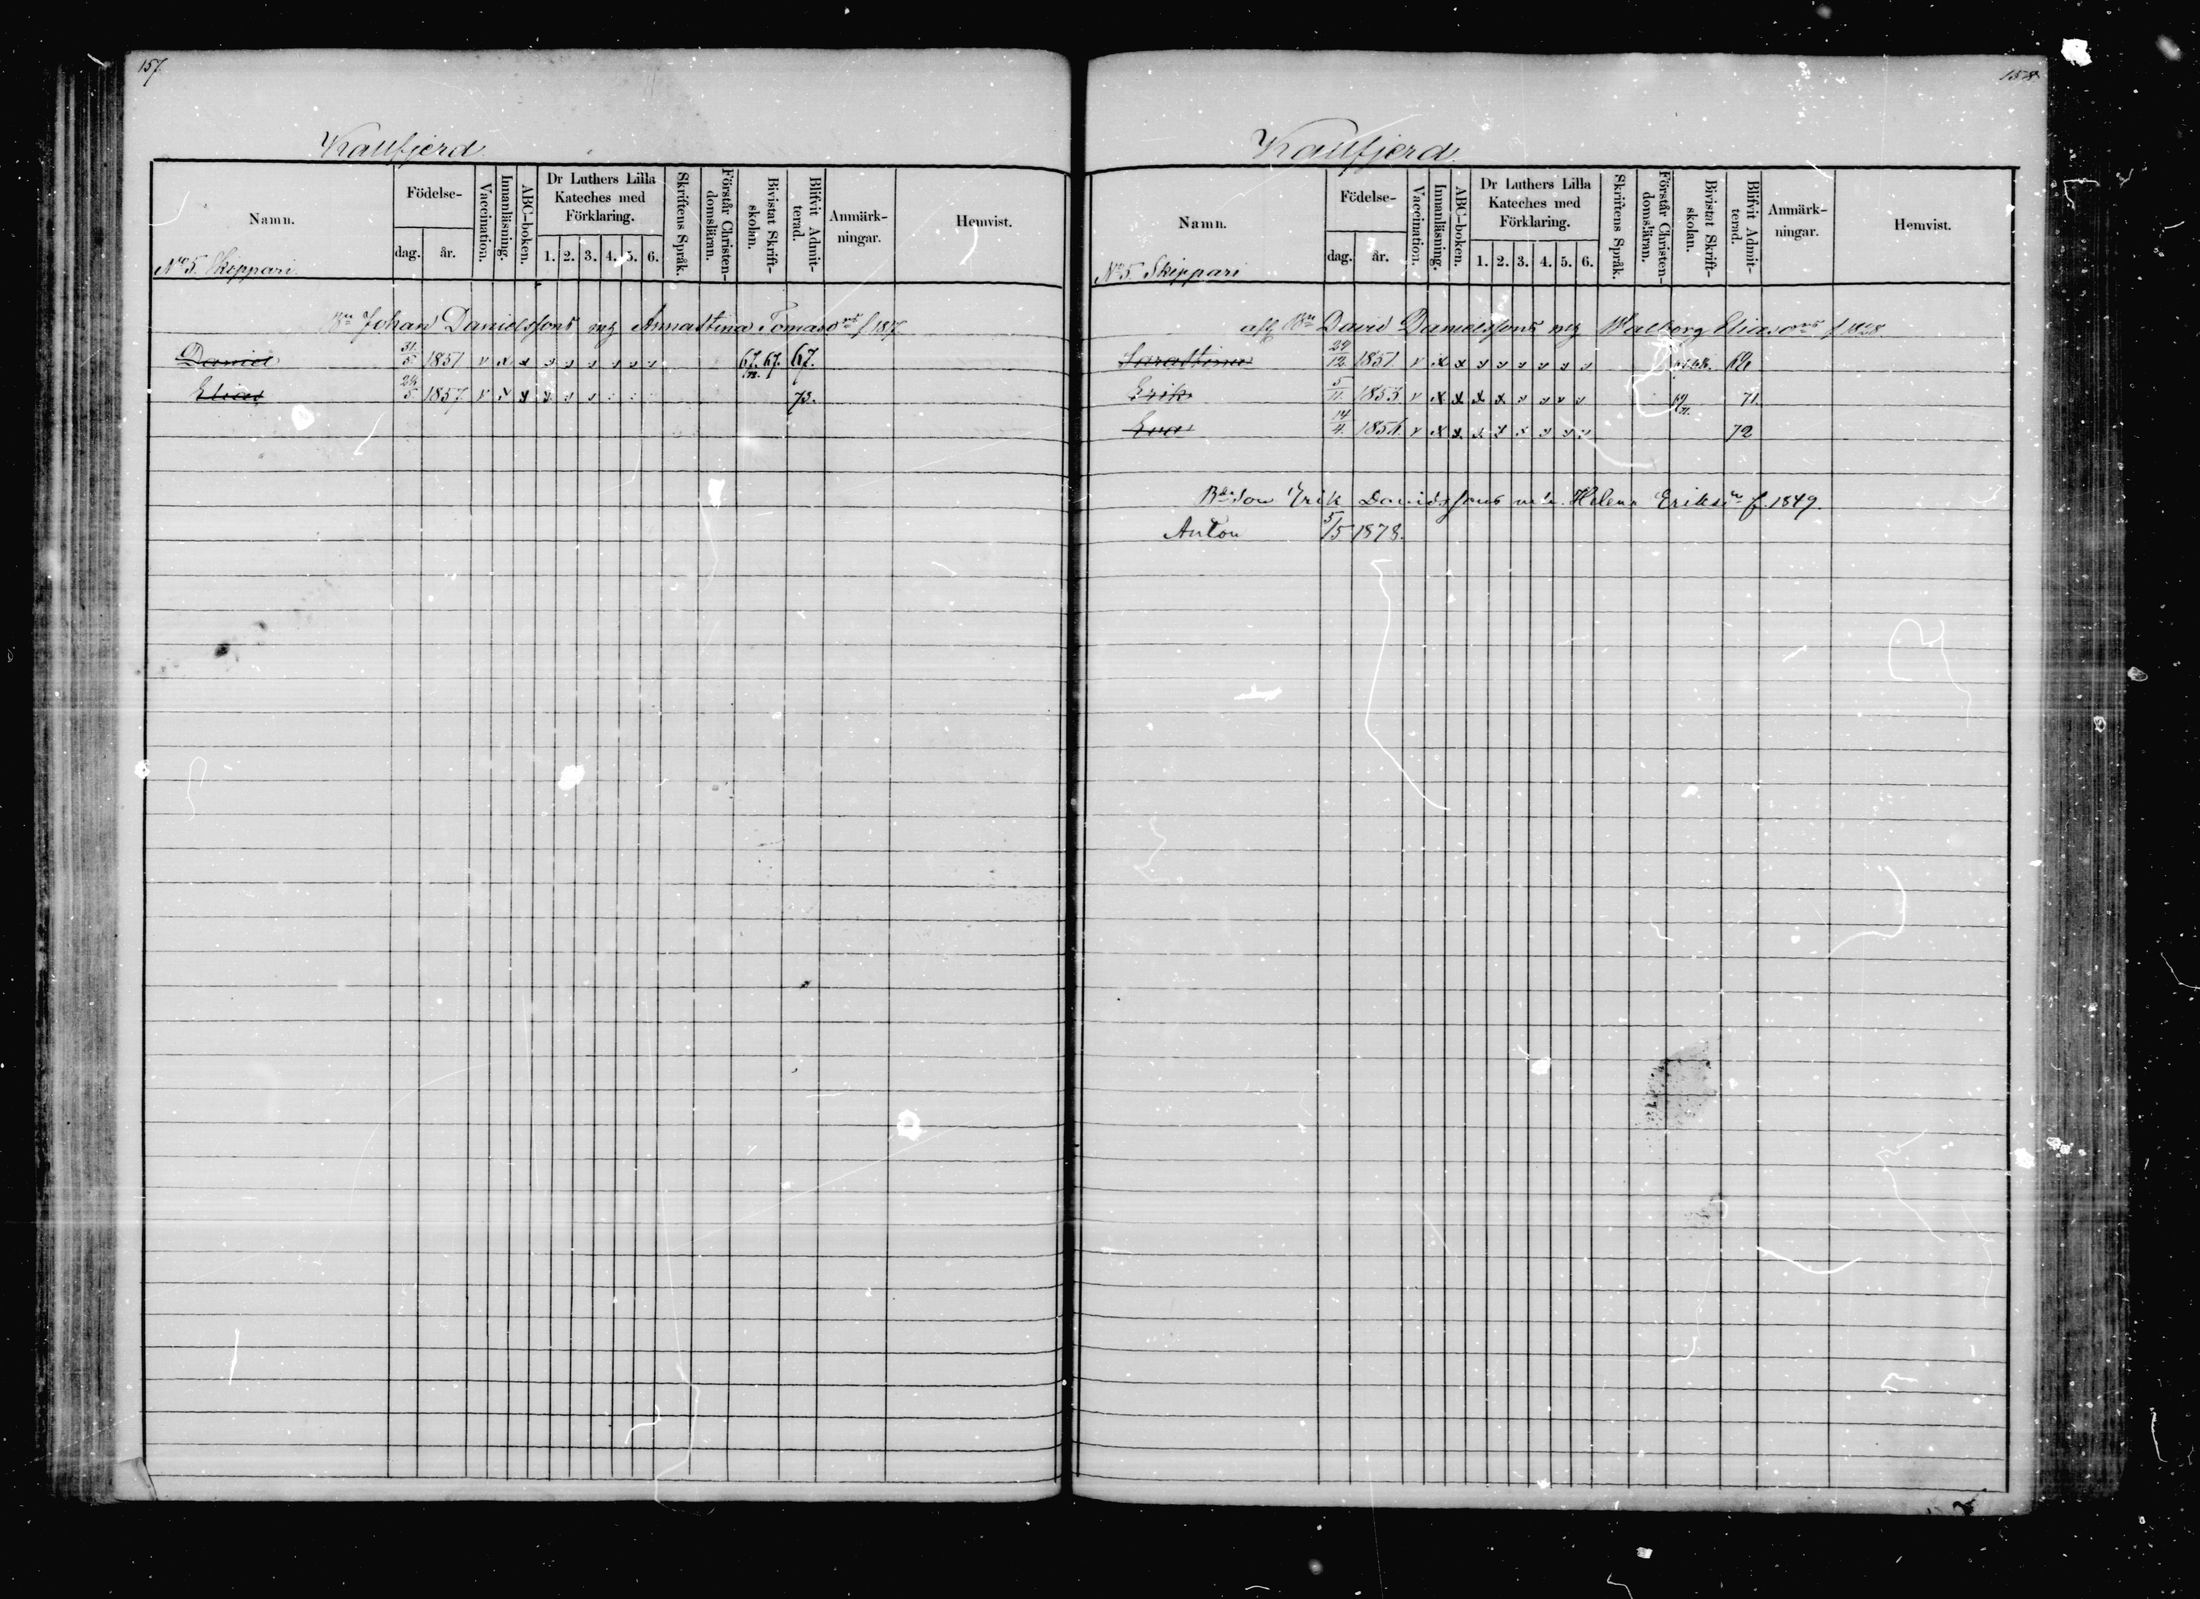 157
Kallfjerd
Namn.
Födelse-
dag. år.
Vaccination.
Innanläsning.
ABC-boken.
Dr Luthers Lilla
Kateches med
Förklaring.
1. 2. 3. 4. 5. 6.
Skriftens Språk.
Förstår Christen-
domsläran.
Bivistat Skrift-
skolan.
Blifvit Admit-
terad.
Anmärk-
ningar.
Hemvist.
No 5. Skippari
Bn Johan Danielssons mg Annastina Tomasd
Daniel 31/5 1851 v x x 67. 67. 67.
Elias 24/5 1857 v x x 73.
158
Kallfjerd.
Namn.
Födelse-
dag. år.
Vaccination.
Innanläsning.
ABC-boken.
Dr Luthers Lilla
Kateches med
Förklaring.
1. 2. 3. 4. 5. 6.
Skriftens Språk.
Förstår Christen-
domsläran.
Bivistat Skrift-
skolan.
Blifvit Admit-
terad.
Anmärk-
ningar.
Hemvist.
No 5. Skippari
Bn David Danielssons mg Walborg f 1828
24/12 1851 v x x
Erik 5/11 1853 v x x x x 71.
Eva 14/4 v x x 72
Bdeson Erik Davidssons Helena Eriksdr f. 1849.
Anton 5/5 1878.